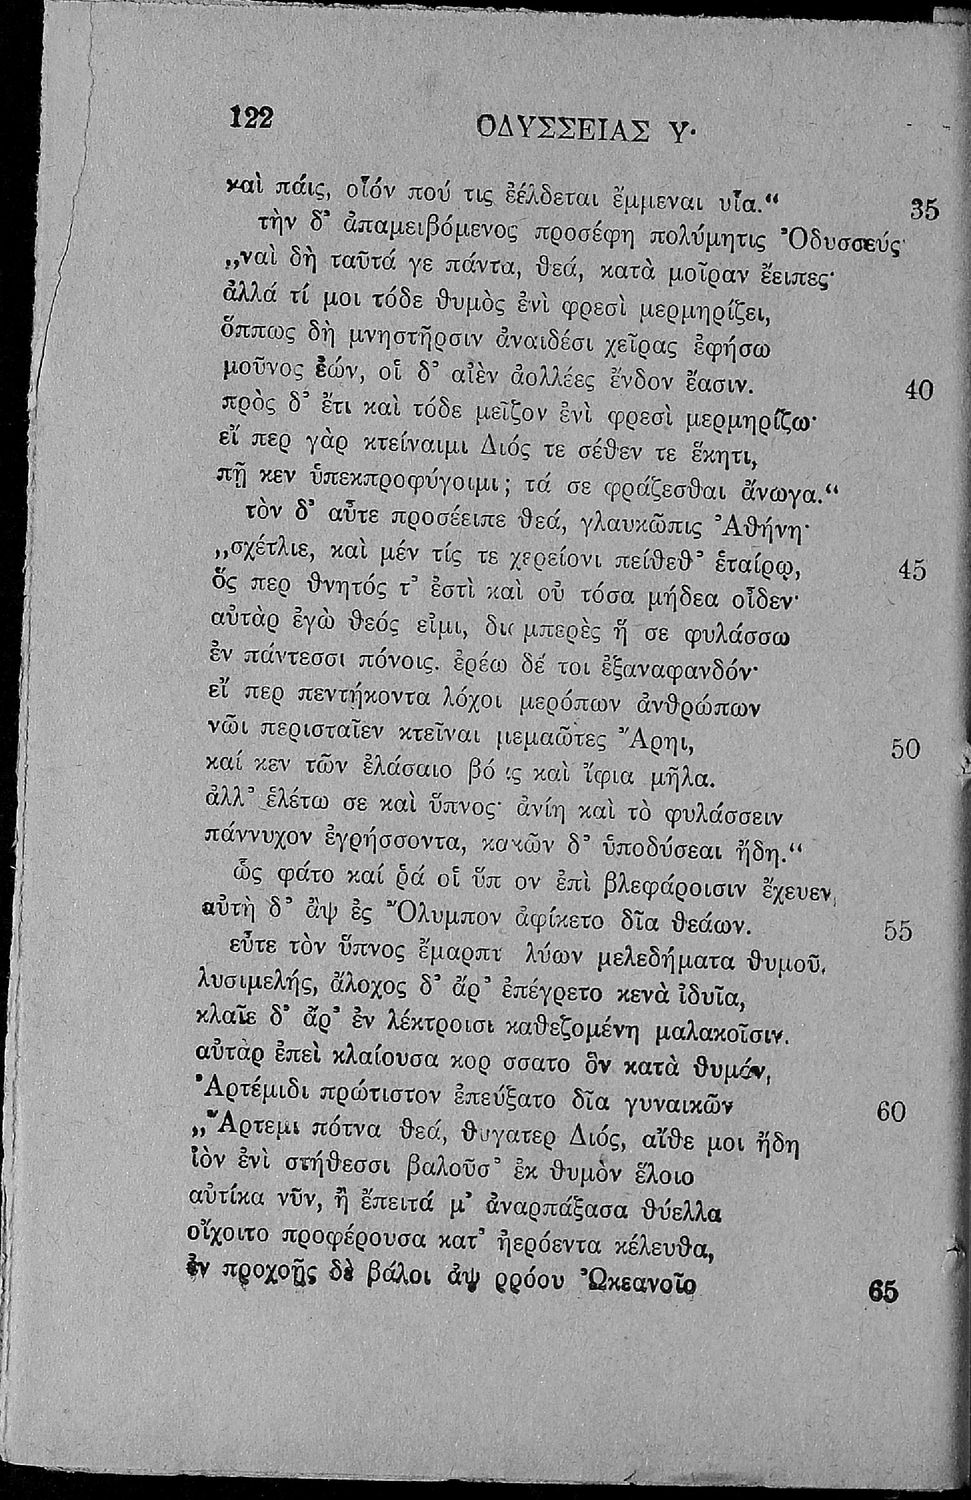 122 ΟΔΥΣΣΕΙΑΣ Υ·
καὶ πάις, οἷόν πού τις ἐέλδεται ἔμμεναι υἷα.“ 35
τὴν δ’ ἀπαμειβόμενος προσέφη πολύμητις Ὀδυσσεύς·
„ναὶ δὴ ταῦτά γε πάντα, θεά, κατὰ μοῖραν ἔειπες·
ἀλλά τί μοι τόδε θυμὸς ἐνὶ φρεσὶ μερμηρίζει,
ὅππως δὴ μνηστῆρσιν ἀναιδέσι χεῖρας ἐφήσω
μοῦνος ἐών, οἱ δ’ αἰὲν ἀολλέες ἔνδον ἔασιν. 40
πρὸς δ’ ἔτι καὶ τόδε μεῖζον ἐνὶ φρεσὶ μερμηρίζω·
εἴ περ γὰρ κτείναιμι Διός τε σέθεν τε ἕκητι,
πῇ κεν ὑπεκπροφύγοιμι; τά σε φράζεσθαι ἄνωγα.“
τὸν δ’ αὖτε προσέειπε θεά, γλαυκῶπις Ἀθήνη·
„σχέτλιε, καὶ μέν τίς τε χερείονι πείθεθ’ ἑταίρῳ, 45
ὅς περ θνητός τ’ ἐστὶ καὶ οὐ τόσα μήδεα οἶδεν·
αὐτὰρ ἐγὼ θεός εἰμι, δι μπερὲς ἥ σε φυλάσσω
ἐν πάντεσσι πόνοις. ἐρέω δέ τοι ἐξαναφανδόν·
εἴ περ πεντήκοντα λόχοι μερόπων ἀνθρώπων
νῶι περισταῖεν κτεῖναι μεμαῶτες Ἄρηι, 50
καί κεν τῶν ἐλάσαιο βό ς καὶ ἴφια μῆλα.
ἀλλ’ ἑλέτω σε καὶ ὕπνος· ἀνίη καὶ τὸ φυλάσσειν
πάννυχον ἐγρήσσοντα, κακῶν δ’ ὑποδύσεαι ἤδη.“
ὣς φάτο καί ῥά οἱ ὕπ ον ἐπὶ βλεφάροισιν ἔχευεν,
αὐτὴ δ’ ἂψ ἐς Ὄλυμπον ἀφίκετο δῖα θεάων. 55
εὖτε τὸν ὕπνος ἔμαρπτ λύων μελεδήματα θυμοῦ,
λυσιμελής, ἄλοχος δ’ ἄρ’ ἐπέγρετο κενὰ ἰδυῖα,
κλαῖε δ’ ἄρ’ ἐν λέκτροισι καθεζομένη μαλακοῖσιν.
αὐτὰρ ἐπεὶ κλαίουσα κορ σσατο ὃν κατὰ θυμόν,
Ἀρτέμιδι πρώτιστον ἐπεύξατο δῖα γυναικῶν 60
„Ἄρτεμι πότνα θεά, θυγατερ Διός, αἴθε μοι ἤδη
ἰὸν ἐνὶ στήθεσσι βαλοῦσ’ ἐκ θυμὸν ἕλοιο
αὐτίκα νῦν, ἢ ἔπειτά μ’ ἀναρπάξασα θύελλα
οἴχοιτο προφέρουσα κατ’ ἠερόεντα κέλευθα,
ἐν προχοῇς δὲ βάλοι ἀψ ρρόου Ὠκεανοῖο 65